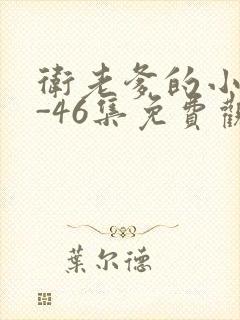 衛老爹的小
-46集免費觀
葉尔德